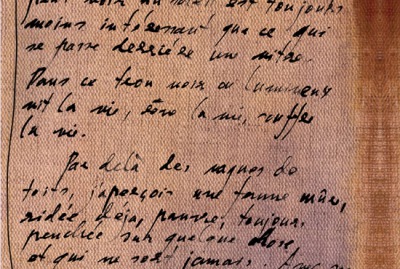 peut voir au soleil est toujours
moins intéressant que ce qui
se passe derrière un vitre.
Dans ce trou noir ou lumineux
vit la vie, rêve la vie, souffre
la vie.
Par delà des vagues de
toits, j'aperçois une femme mûre,
ridée, déjà, pauvre, toujours
penchée sur quelque chose,
et qui ne sort jamais.